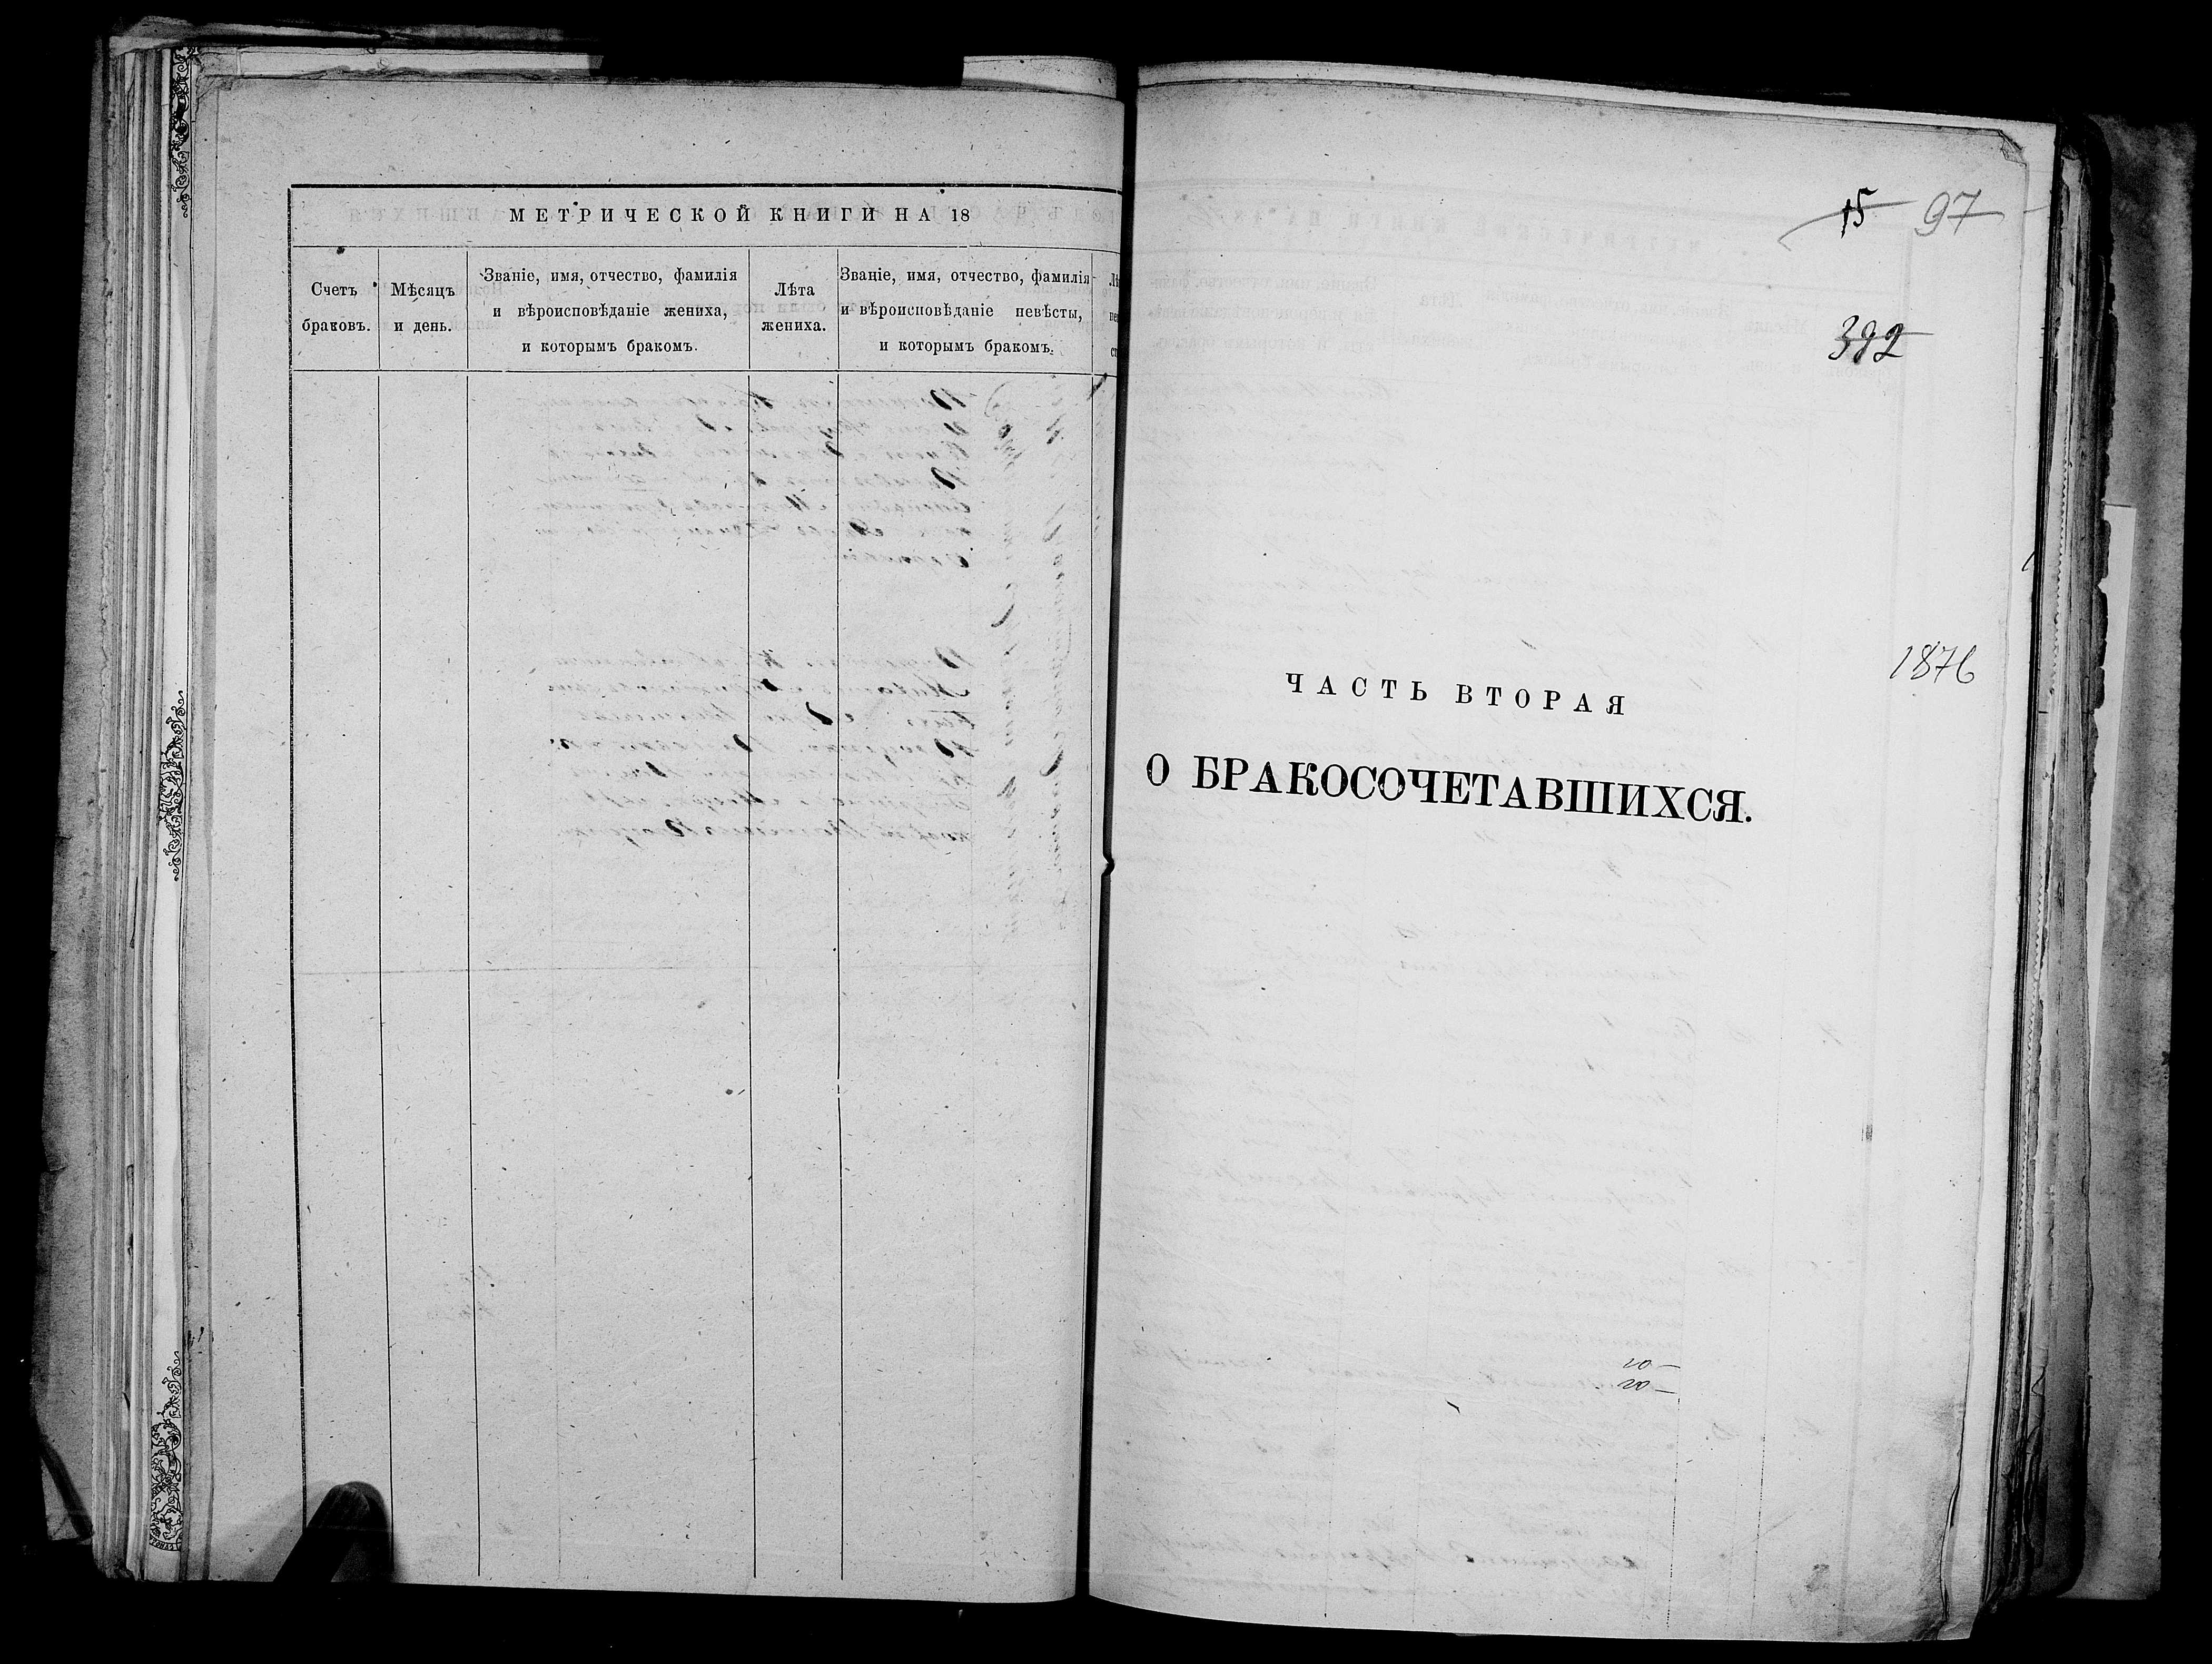 МЕТРИЧЕСКОЙ КНИГИ НА 18
Счетъ
браковъ.
Мѣсяцъ
и день.
Званіе, имя, отчество, фамилія
и вѣроисповѣданіе жениха,
и которымъ бракомъ.
Лѣта
жениха.
Званіе, имя, отчество, фамилія
и вѣроисповѣданіе невѣсты,
и которымъ бракомъ.
15 97
392
1876
ЧАСТЬ ВТОРАЯ
О БРАКОСОЧЕТАВШИХСЯ.
20 —
20 —